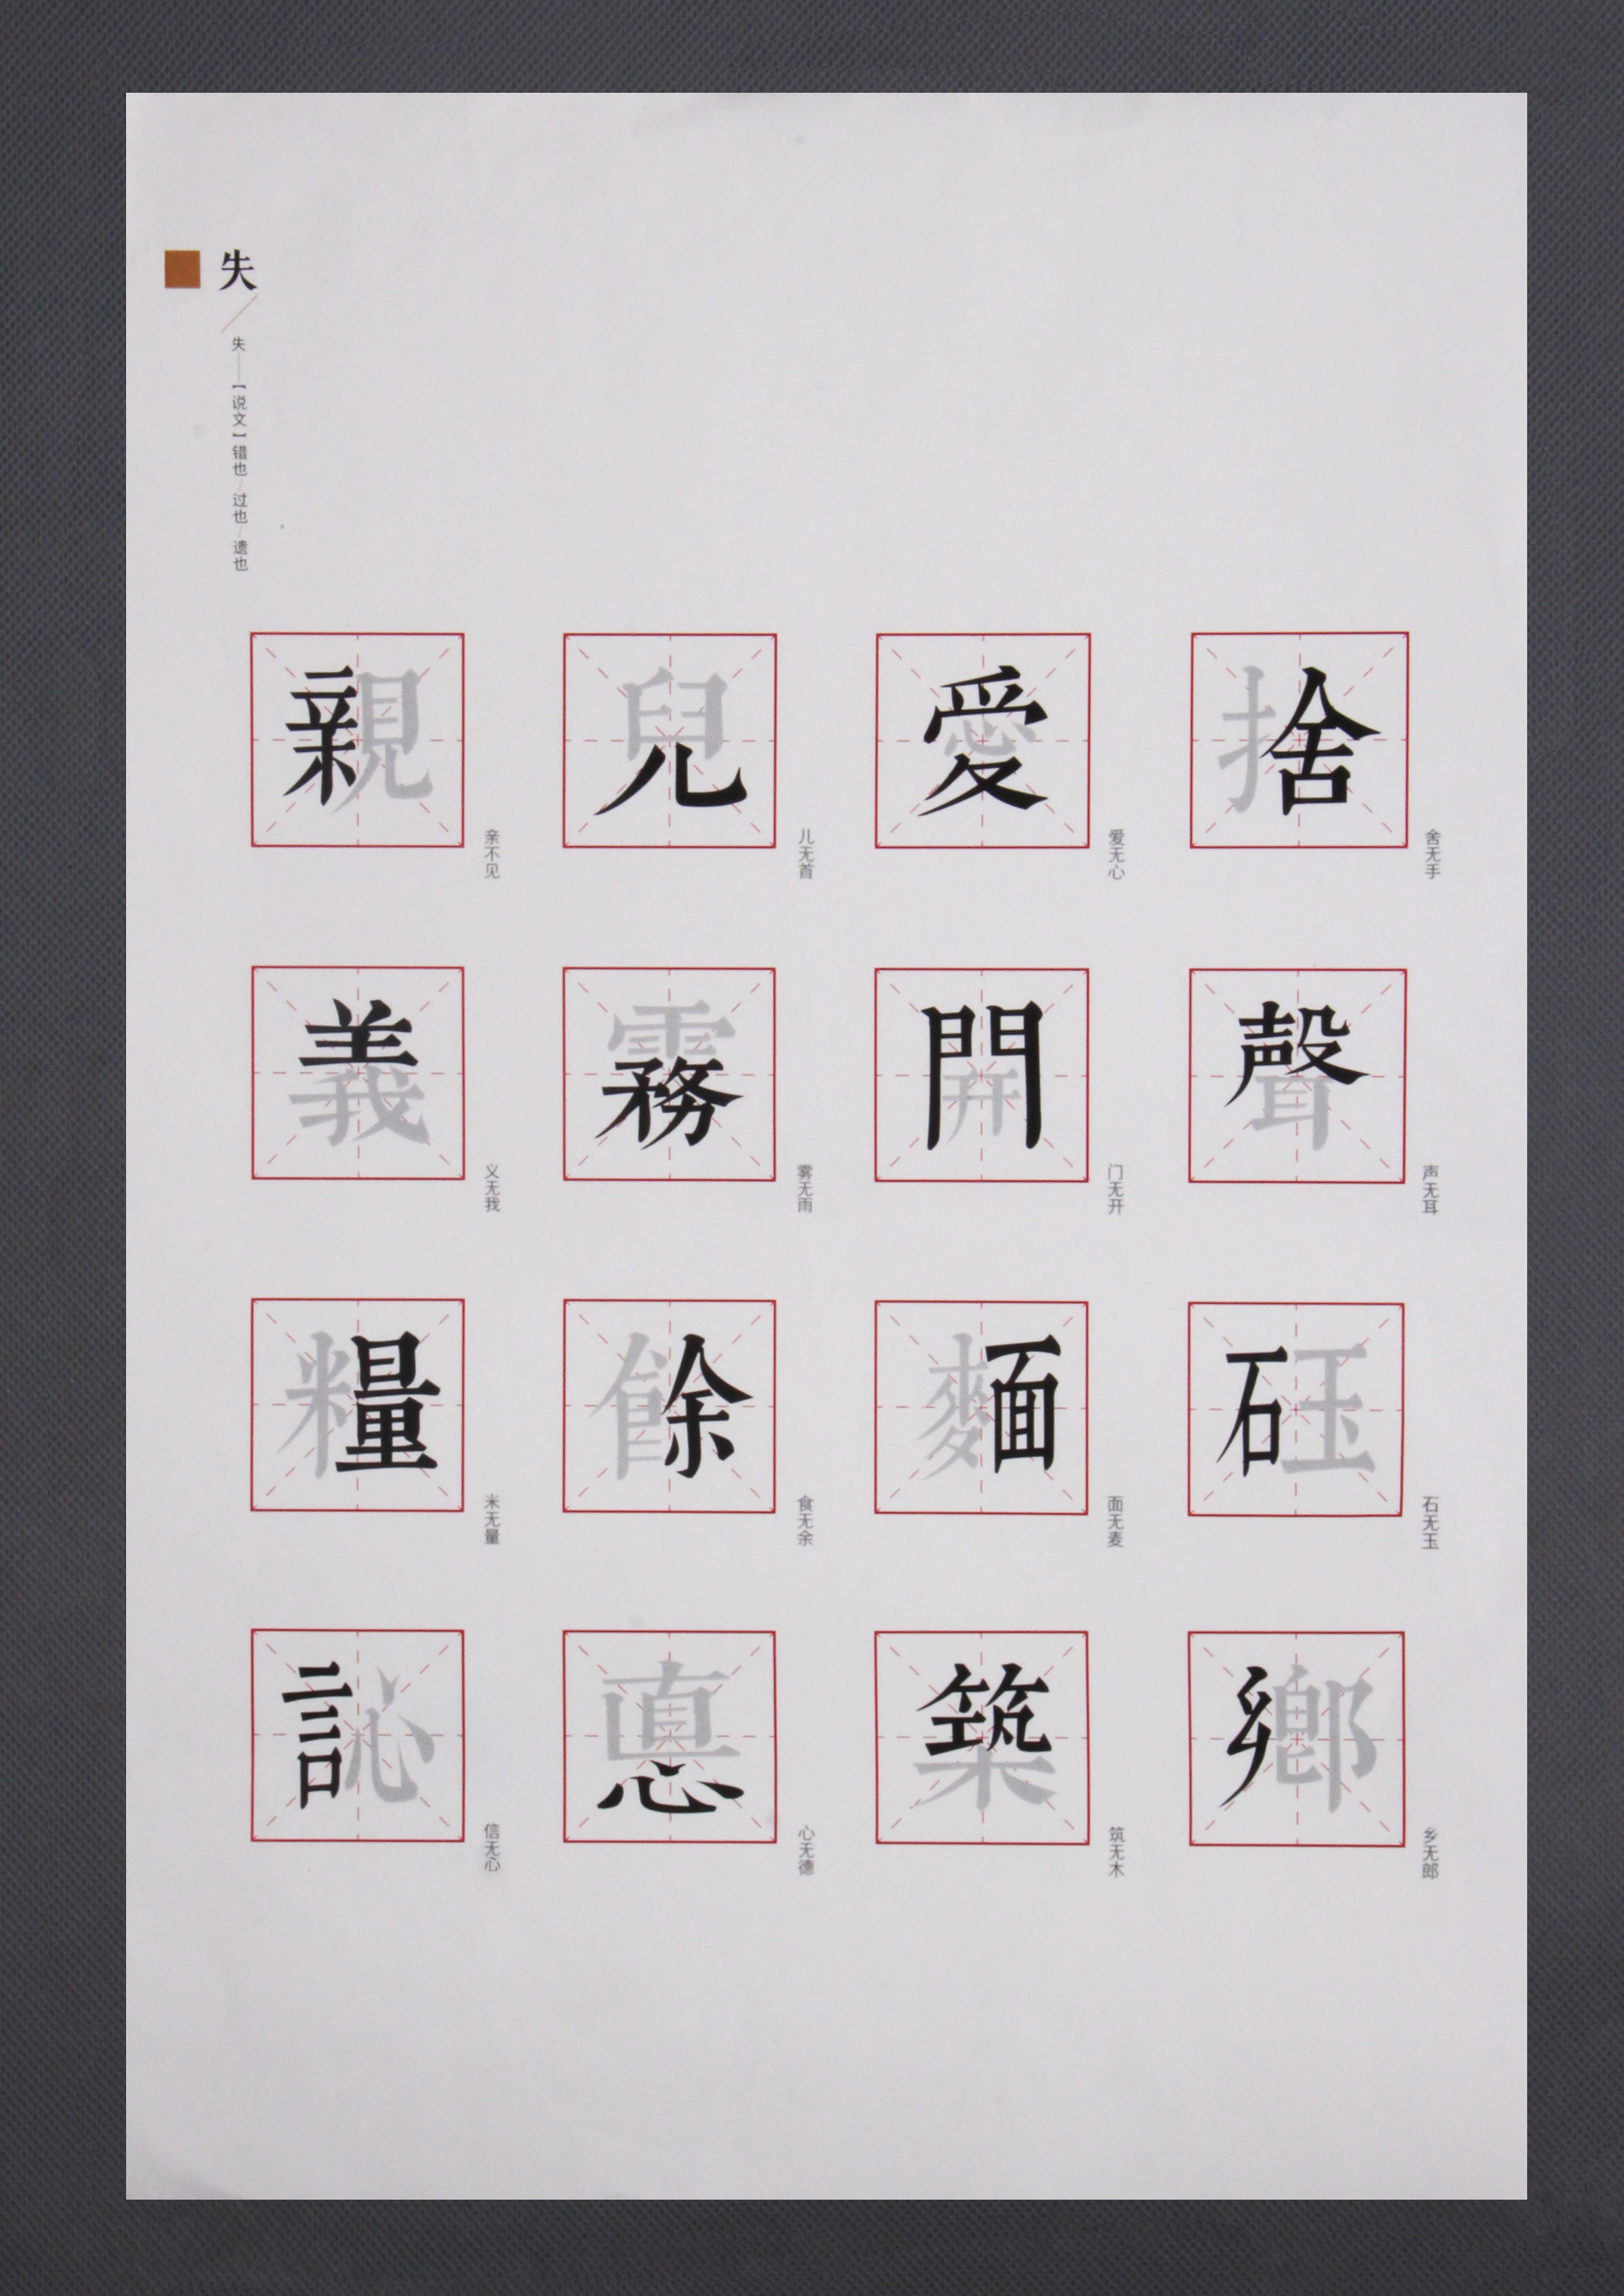 失
失——【说文】错也/过也/遗也
親
亲不见
兒
儿无首
愛
爱无心
捨
舍无手
義
义无我
霧
雾无雨
開
门无开
聲
声无耳
糧
米无量
餘
食无余
麵
面无麦
砡
石无玉
訫
信无心
悳
心无德
築
筑无木
鄉
乡无郎